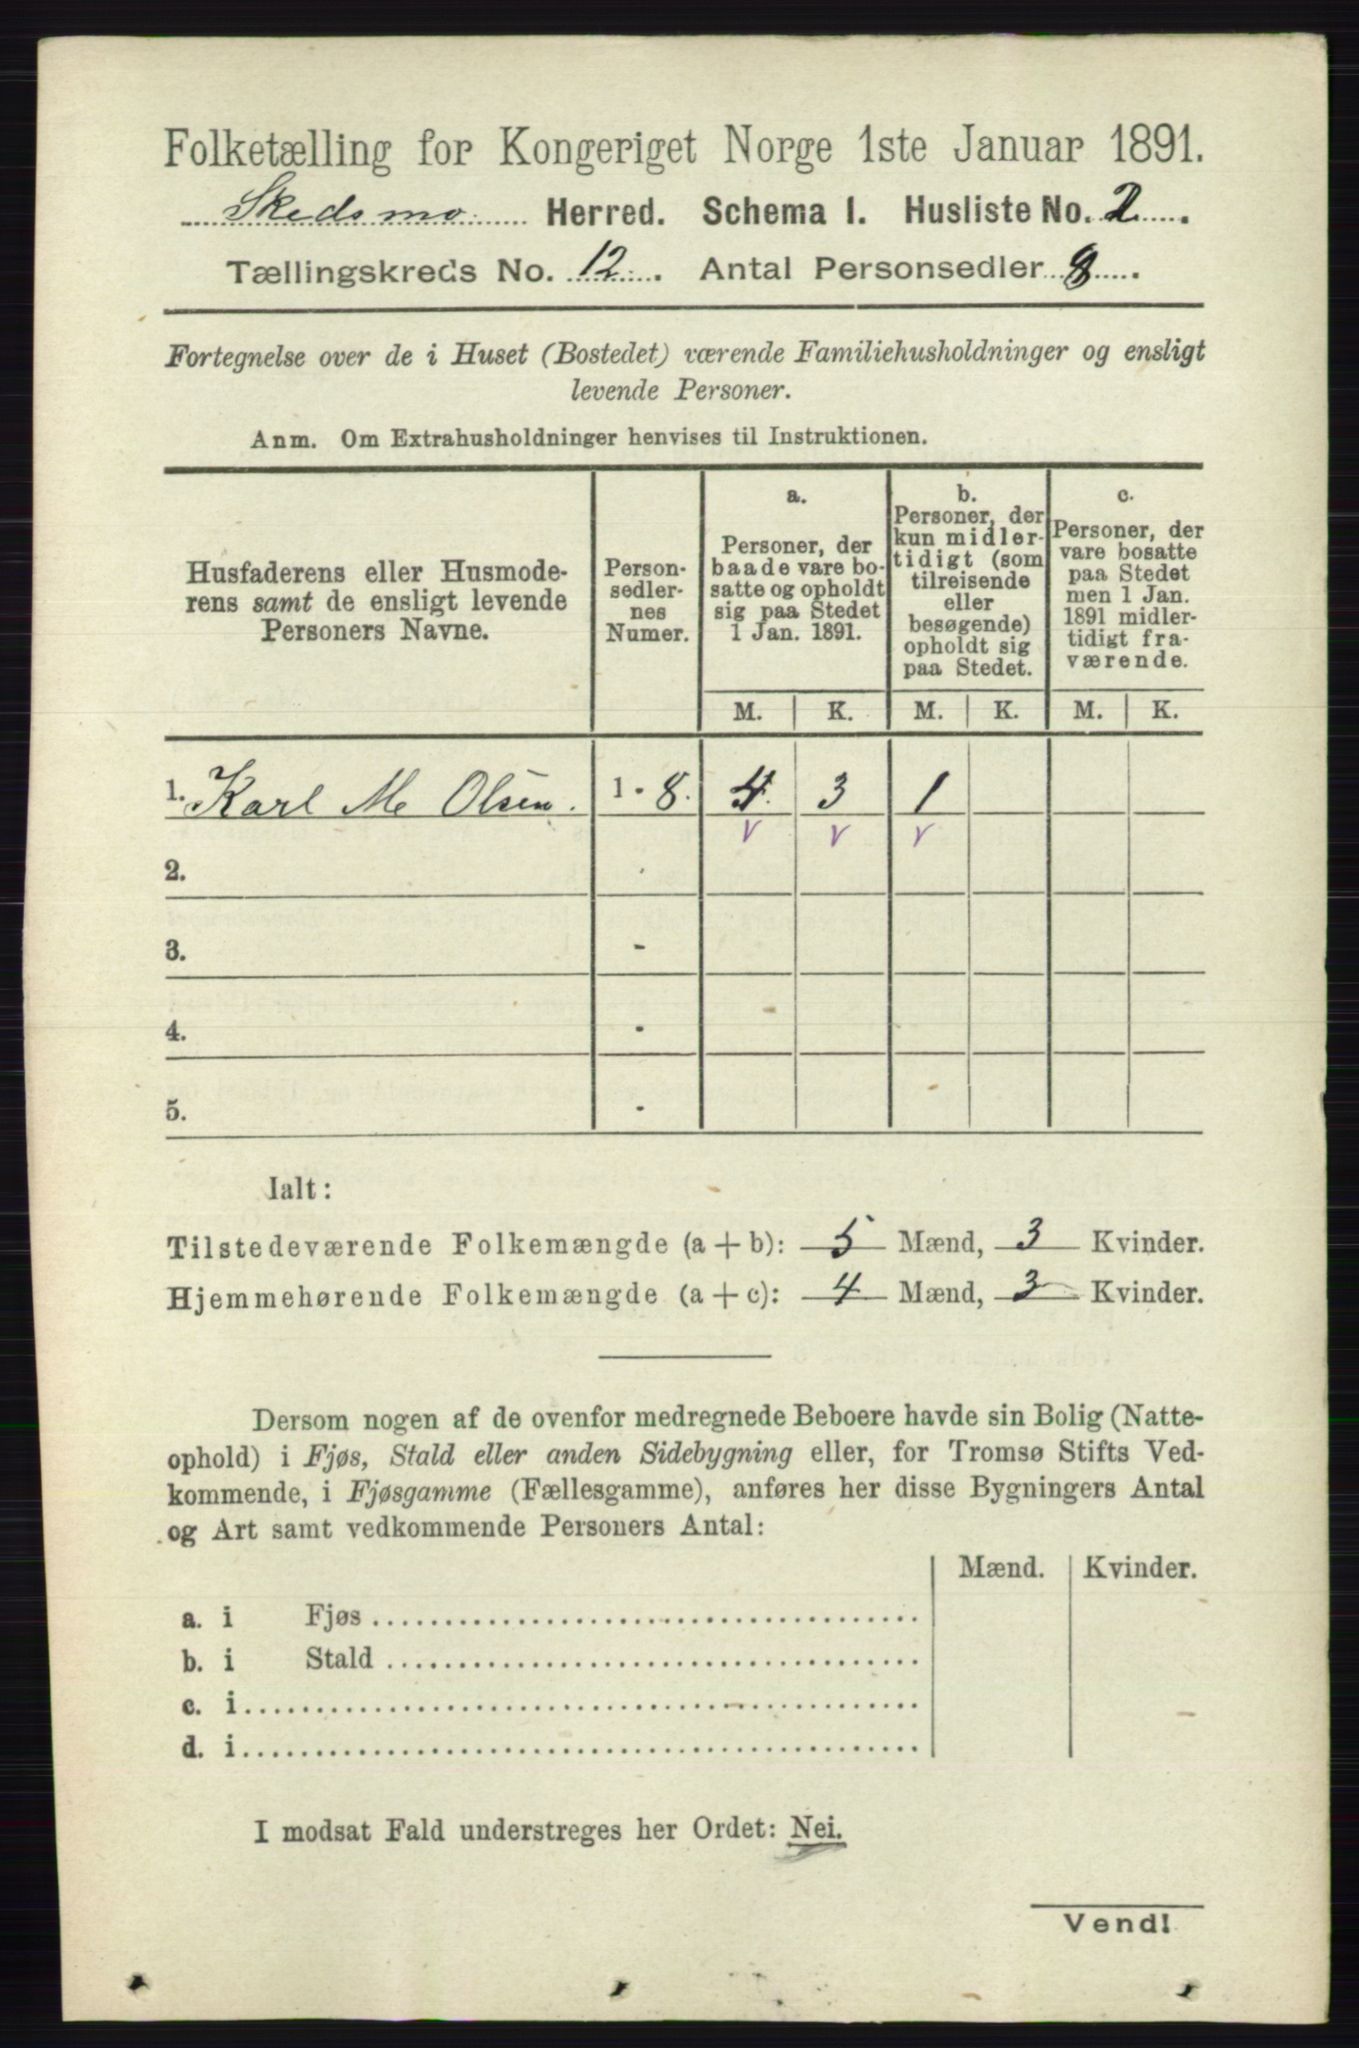 Folketælling for Kongeriget Norge 1ste Januar 1891.
Skedsmo Herred. Schema I. Husliste No. 2.
Tællingskreds No. 12. Antal Personsedler 8.
Fortegnelse over de i Huset (Bostedet) værende Familiehusholdninger og ensligt
levende Personer.
Anm. Om Extrahusholdninger henvises til Instruktionen.
Husfaderens eller Husmode-
rens samt de ensligt levende
Personers Navne.
Person-
sedler-
nes
Numer.
a.
Personer, der
baade vare bo-
satte og opholdt
sig paa Stedet
1 Jan. 1891.
b.
Personer, der
kun midler-
tidigt (som
tilreisende
eller
besøgende)
opholdt sig
paa Stedet.
c.
Personer, der
vare bosatte
paa Stedet
men 1 Jan.
1891 midler-
tidigt fra-
værende.
M. K. M. K. M. K.
1. Karl M Olsen. 1 - 8. 4. 3 1
v v v
2.
3. -
4. -
5. -
Ialt:
Tilstedeværende Folkemængde (a + b): 5 Mænd, 3 Kvinder.
Hjemmehørende Folkemængde (a + c): 4 Mænd, 3 Kvinder.
Dersom nogen af de ovenfor medregnede Beboere havde sin Bolig (Natte-
ophold) i Fjøs, Stald eller anden Sidebygning eller, for Tromsø Stifts Ved-
kommende, i Fjøsgamme (Fællesgamme), anføres her disse Bygningers Antal
og Art samt vedkommende Personers Antal:
Mænd. Kvinder.
a. i Fjøs
b. i Stald
c. i
d. i
I modsat Fald understreges her Ordet: Nei.
Vend!